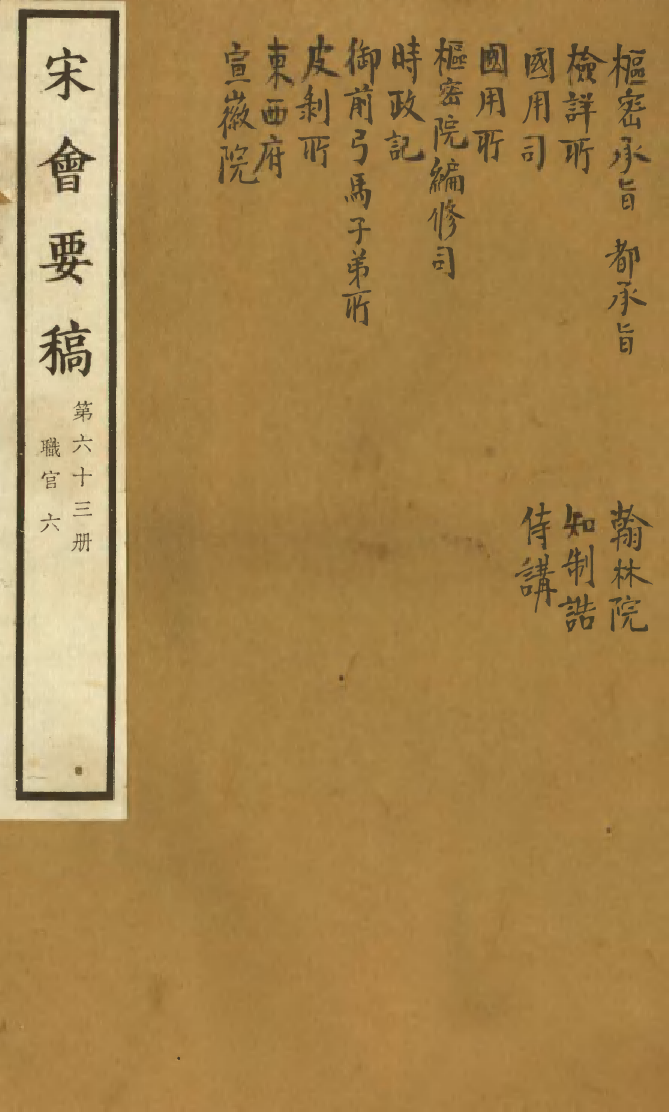 樞密承旨 都承旨
檢詳所
國用司
國用所
樞密院編修司
時政記
御前弓馬子弟所
皮剝所
東西府
宣徽院
翰林院
知制誥
侍講
宋會要稿
第六十三册
職官六